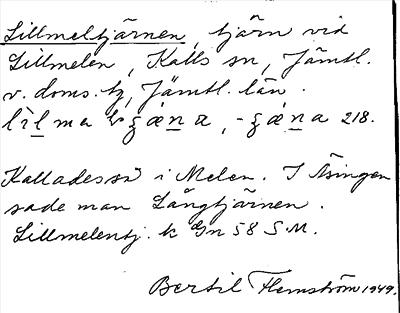 Lillmeltjärnen, tjärn vid
Lillmelen, Kalls sn, Jämtl.
v. doms. tg, Jämtl. län.
218.
Kallades så i Melen. I Åsingen
sade man Långtjärnen.
Lillmelentj. k Gn 58 S.M.
Bertil Flemström 1949.